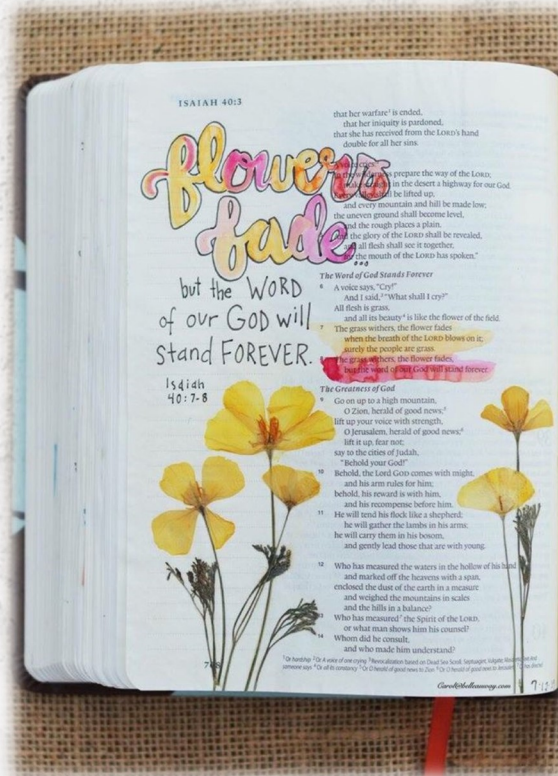 ISAIAH 40:3
flowers
fade
...
but the WORD
of our GOD will
stand FOREVER.
Isaiah
40:7-8
that her warfare¹ is ended,
that her iniquity is pardoned,
that she has received from the LORD's hand
double for all her sins.
cries:
prepare the way of the LORD;
in the desert a highway for our God.
be lifted up,
and every mountain and hill be made low;
the uneven ground shall become level,
and the rough places a plain.
the glory of the LORD shall be revealed,
all flesh shall see it together,
the mouth of the LORD has spoken."
The Word of God Stands Forever
6 A voice says, "Cry!"
And I said,² "What shall I cry?"
All flesh is grass,
and all its beauty⁴ is like the flower of the field.
7 The grass withers, the flower fades
when the breath of the LORD blows on it;
surely the people are grass.
8 The grass withers, the flower fades,
but the word of our God will stand forever.
The Greatness of God
9 Go on up to a high mountain,
O Zion, herald of good news;⁵
lift up your voice with strength,
O Jerusalem, herald of good news;⁶
lift it up, fear not;
say to the cities of Judah,
"Behold your God!"
10 Behold, the Lord GOD comes with might,
and his arm rules for him;
behold, his reward is with him,
and his recompense before him.
11 He will tend his flock like a shepherd;
he will gather the lambs in his arms;
he will carry them in his bosom,
and gently lead those that are with young.
12 Who has measured the waters in the hollow of his hand
and marked off the heavens with a span,
enclosed the dust of the earth in a measure
and weighed the mountains in scales
and the hills in a balance?
13 Who has measured⁷ the Spirit of the LORD,
or what man shows him his counsel?
14 Whom did he consult,
and who made him understand?
¹ Or hardship ² Or A voice of one crying ³ Revocalization based on Dead Sea Scroll, Septuagint, Vulgate;
someone says ⁴ Or all its constancy ⁵ Or O herald of good news to Zion ⁶ Or O herald of good news to Jerusalem